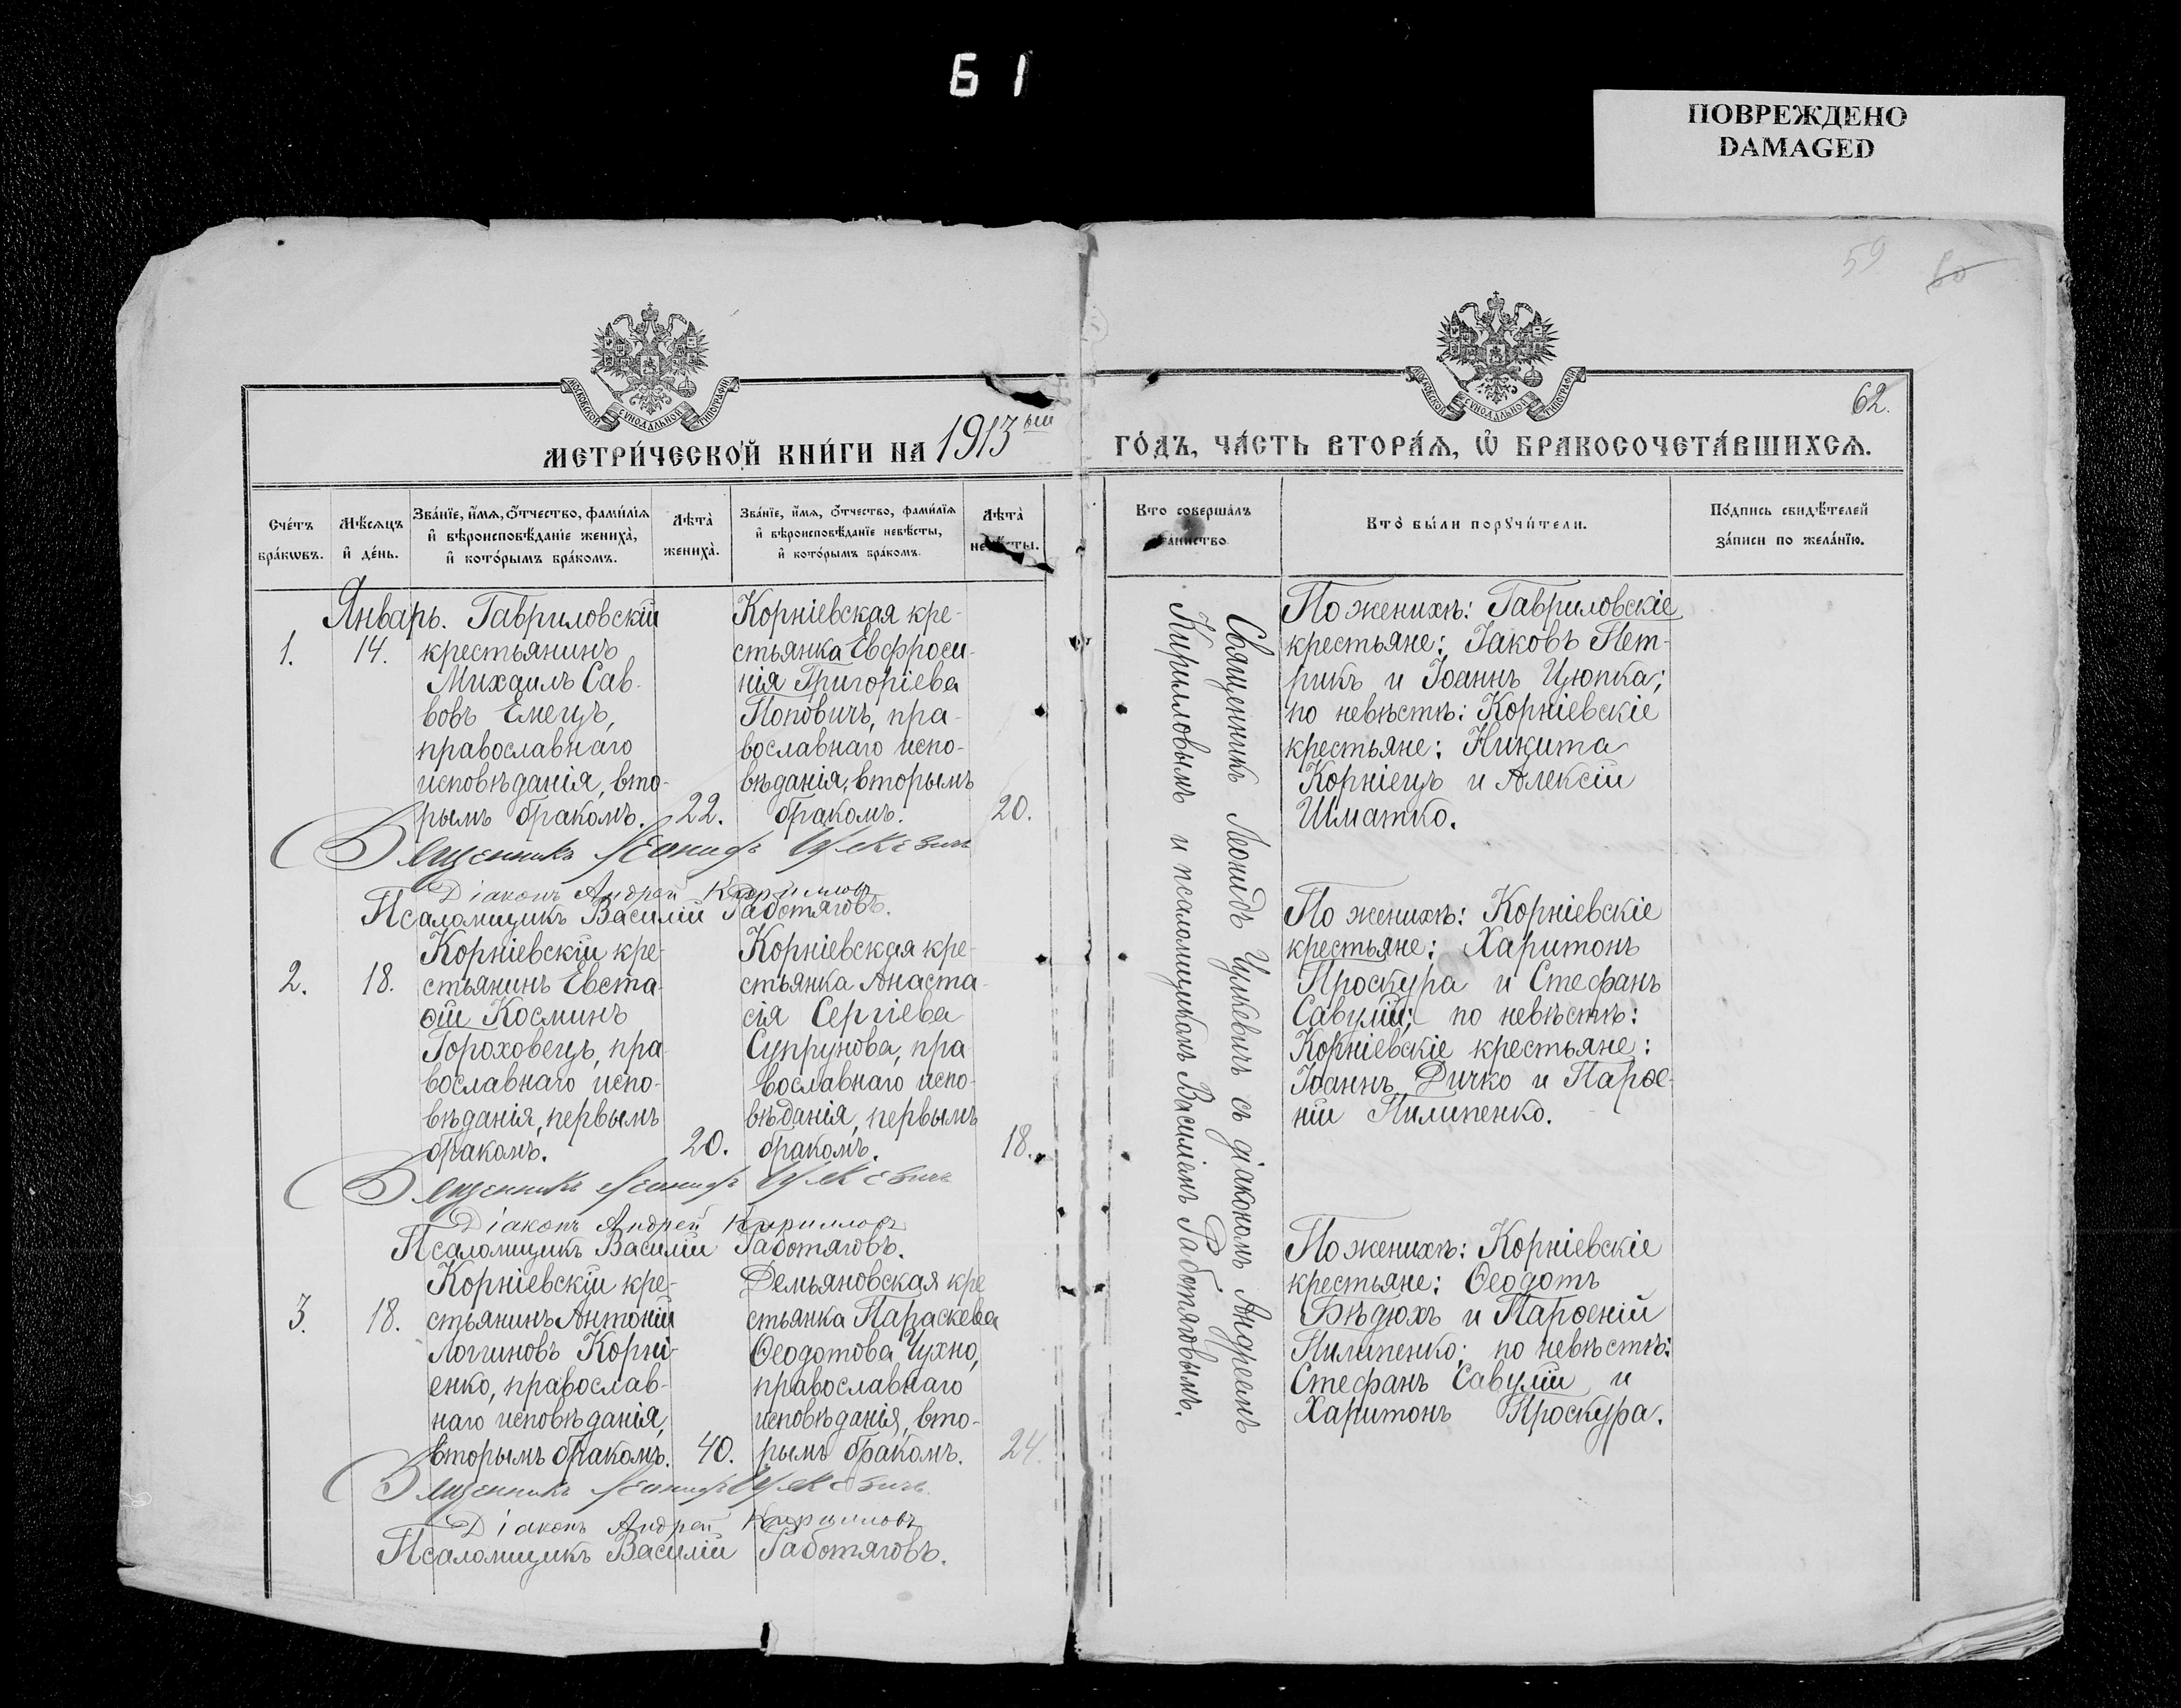 Б 1
ПОВРЕЖДЕНО
DAMAGED
59
60
62.
МОСКОВСКОЙ СѴНОДАЛЬНОЙ ТИПОГРАФІИ
МОСКОВСКОЙ СѴНОДАЛЬНОЙ ТИПОГРАФІИ
МЕТРИ́ЧЕСКОЙ КНИ́ГИ НА 1913ый
ГО́ДЪ, ЧА́СТЬ ВТОРА́Ѧ, Ѡ҆ БРАКОСОЧЕТА́ВШИХСѦ.
Сче́тъ
бра́кѡвъ.
Мѣ́сѧцъ
и҆ де́нь.
Зва́нїе, и҆́мѧ, ѻ҆́тчество, фами́лїѧ
и҆ вѣроисповѣ́данїе жениха̀,
и҆ кото́рымъ бра́комъ.
Лѣта̀
жениха̀.
Зва́нїе, и҆́мѧ, ѻ҆́тчество, фами́лїѧ
и҆ вѣроисповѣ́данїе невѣ́сты,
и҆ кото́рымъ бра́комъ.
Лѣта̀
невѣ́сты.
Кто̀ соверша́лъ
таинство.
Кто̀ бы́ли порꙋчи́тели.
По́дпись свидѣ́телей
за́писи по жела́нїю.
Январь.
1.
14.
Гавриловскій
крестьянинъ
Михаилъ Сав-
вовъ Емецъ,
православнаго
исповѣданія, вто-
рымъ бракомъ.
22.
Корніевская кре-
стьянка Евфроси-
нія Григоріева
Поповичъ, пра-
вославнаго испо-
вѣданія, вторымъ
бракомъ.
20.
Священникъ Леонидъ Цулкевичъ съ діакономъ Андреемъ
Кирилловымъ и псаломщикомъ Василіемъ Работяговымъ.
По женихѣ: Гавриловскіе
крестьяне: Іаковъ Пет-
рикъ и Іоаннъ Цюпка;
по невѣстѣ: Корніевскіе
крестьяне: Никита
Корніецъ и Алексій
Шматко.
Священникъ Леонидъ Цулкевичъ
Діаконъ Андрей Кирилловъ
Псаломщикъ Василій Работяговъ.
2.
18.
Корніевскій кре-
стьянинъ Евста-
ѳій Косминъ
Гороховецъ, пра-
вославнаго испо-
вѣданія, первымъ
бракомъ.
20.
Корніевская кре-
стьянка Анаста-
сія Сергіева
Супрунова, пра-
вославнаго испо-
вѣданія, первымъ
бракомъ.
18.
По женихѣ: Корніевскіе
крестьяне: Харитонъ
Проскура и Стефанъ
Савулій; по невѣстѣ:
Корніевскіе крестьяне:
Іоаннъ Дичко и Парѳе-
ній Пилипенко.
Священникъ Леонидъ Цулкевичъ
Діаконъ Андрей Кирилловъ
Псаломщикъ Василій Работяговъ.
3.
18.
Корніевскій кре-
стьянинъ Антоній
Логгиновъ Корні-
енко, православ-
наго исповѣданія,
вторымъ бракомъ.
40.
Демьяновская кре
стьянка Параскева
Ѳеодотова Чухно,
православнаго
исповѣданія, вто-
рымъ бракомъ.
24.
По женихѣ: Корніевскіе
крестьяне: Ѳеодотъ
Бѣдюхъ и Парѳеній
Пилипенко; по невѣстѣ:
Стефанъ Савулій и
Харитонъ Проскура.
Священникъ Леонидъ Цулкевичъ
Діаконъ Андрей Кирилловъ
Псаломщикъ Василій Работяговъ.